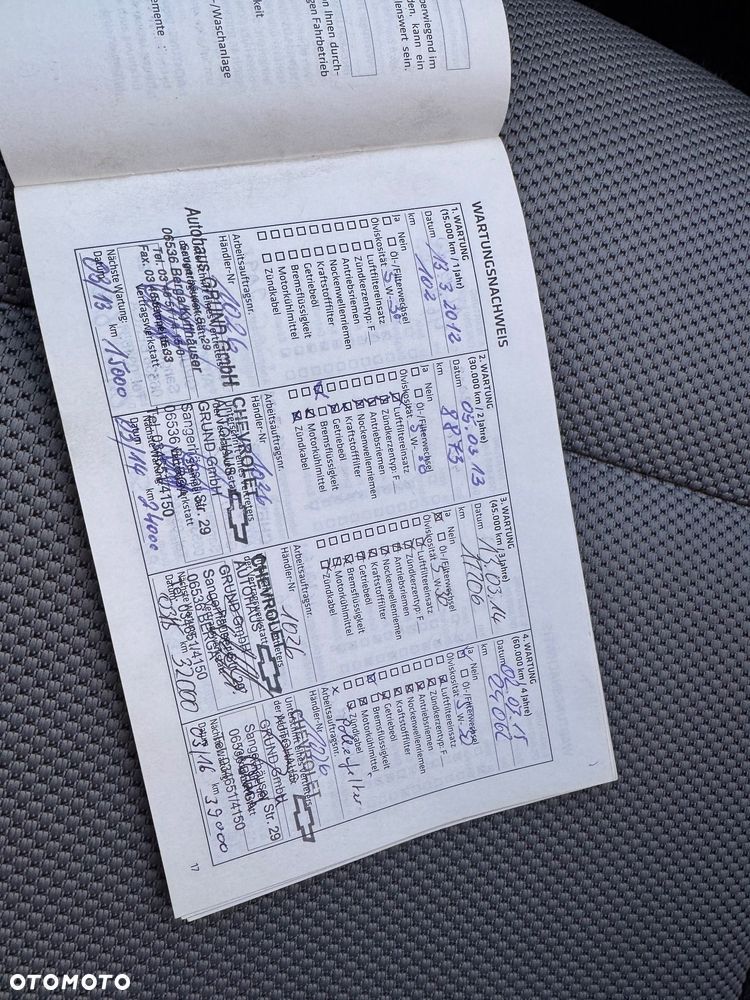 erwiegend im
den, kann ein
lenswert sein.
n Ihnen durch-
gen Fahrbetrieb
-/Waschanlage
keit
emente :
WARTUNGSNACHWEIS
1. WARTUNG
(15.000 km / 1 Jahr)
Datum 13.3.2012
km 102
Ja Nein
Öl-/Filterwechsel
Ölviskosität: 5 W - 30
Luftfiltereinsatz
Zündkerzentyp: F
Antriebsriemen
Nockenwellenriemen
Kraftstofffilter
Getriebeöl
Bremsflüssigkeit
Motorkühlmittel
Zündkabel
Arbeitsauftragsnr.
Händler-Nr 11026
Autohaus GRUND GmbH
06536 Berga-Kyffhäuser
Nächste Wartung
Datum 03/13 km 15000
2. WARTUNG
(30.000 km / 2 Jahre)
Datum 05.03.13
km 8873
Ja Nein
Öl-/Filterwechsel
Ölviskosität: 5 W - 30
Luftfiltereinsatz
Zündkerzentyp: F
Antriebsriemen
Nockenwellenriemen
Kraftstofffilter
Getriebeöl
Bremsflüssigkeit
Motorkühlmittel
Zündkabel
Arbeitsauftragsnr.
Händler-Nr 11026
CHEVROLET
AUTOHAUS
GRUND GmbH
Sangerhäuser Str. 29
06536 BERGA
Datum 03/14 km 24000
3. WARTUNG
(45.000 km / 3 Jahre)
Datum 13.03.14
km 17206
Ja Nein
Öl-/Filterwechsel
Ölviskosität: 5 W - 30
Luftfiltereinsatz
Zündkerzentyp: F
Antriebsriemen
Nockenwellenriemen
Kraftstofffilter
Getriebeöl
Bremsflüssigkeit
Motorkühlmittel
Zündkabel
Arbeitsauftragsnr.
Händler-Nr 11026
CHEVROLET
AUTOHAUS
GRUND GmbH
06536 BERGA
km 32000
4. WARTUNG
(60.000 km / 4 Jahre)
Datum
km
Ja Nein
Öl-/Filterwechsel
Ölviskosität: 5 W - 30
Luftfiltereinsatz
Zündkerzentyp: F
Antriebsriemen
Nockenwellenriemen
Kraftstofffilter
Getriebeöl
Bremsflüssigkeit
Motorkühlmittel
Zündkabel
Pollenfilter
Arbeitsauftragsnr.
Händler-Nr 11026
CHEVROLET
AUTOHAUS
GRUND GmbH
Sangerhäuser Str. 29
06536 BERGA
Datum 03/16 km 39000
17
OTOMOTO